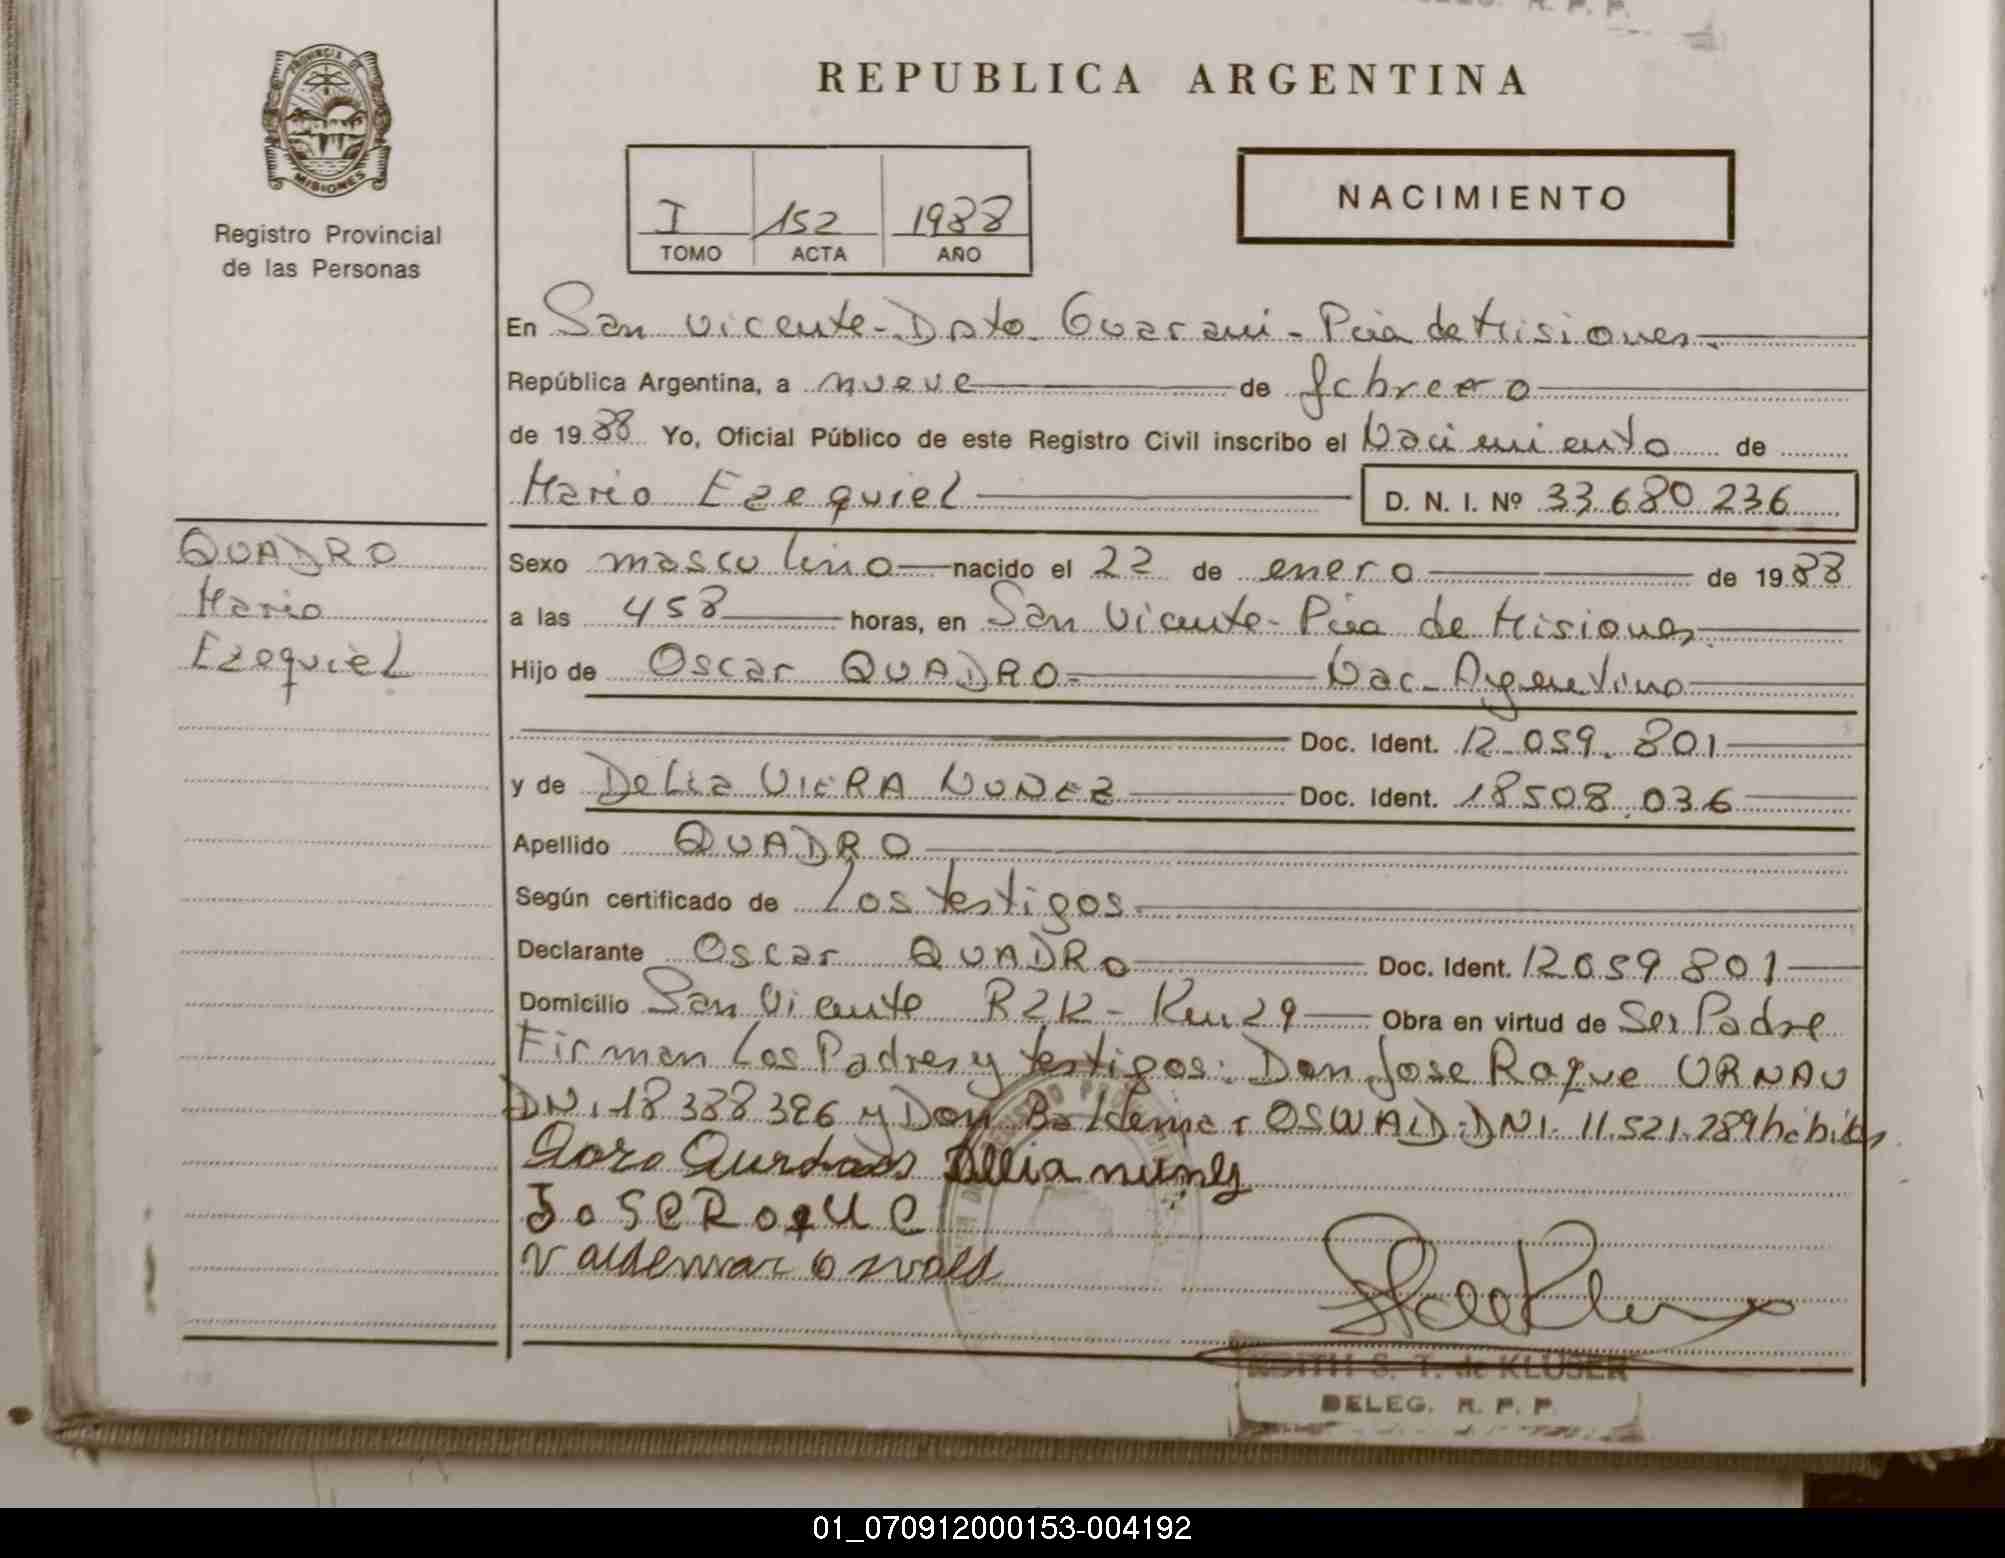 PROVINCIA DE
MISIONES
Registro Provincial
de las Personas
REPUBLICA ARGENTINA
I 152 1988
TOMO ACTA AÑO
NACIMIENTO
En San Vicente - Dpto Guarani - Pcia de Misiones.
República Argentina, a nueve de febrero
de 1988 Yo, Oficial Público de este Registro Civil inscribo el Nacimiento de
Mario Ezequiel D. N. I. Nº 33.680.236
QUADRO
Mario
Ezequiel
Sexo masculino nacido el 22 de enero de 1988
a las 458 horas, en San Vicente - Pcia de Misiones
Hijo de Oscar QUADRO Nac. Argentino
Doc. Ident. 12.059.801
y de Delia VIERA NUÑEZ Doc. Ident. 18508.036
Apellido QUADRO
Según certificado de Los testigos
Declarante Oscar QUADRO Doc. Ident. 12059801
Domicilio San Vicente R212 - Km 29 Obra en virtud de Ser Padre
Firman Los Padres y testigos: Don Jose Roque URNAU
DNI 18338326 y Don Baldemar OSWALD: DNI. 11.521.289 hábiles
Delia nunes
JoSe RoqUe
Valdemar oswald
EDITH S. T. de KLUSER
DELEG. R. P. P.
01_070912000153-004192